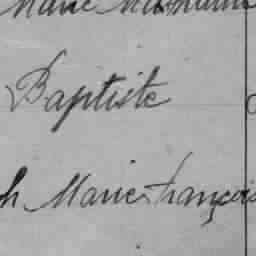 Marie
Baptiste
h Marie François